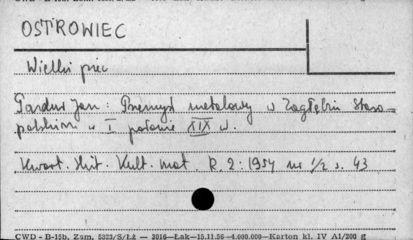 OSTROWIEC
Wielki piec
Pazdur Jan: Przemysł metalowy w Zagłębiu Staro-
polskim w I połowie XIX w.
Kwart. Hist. Kult. mat. R. 2: 1954 nr 1/2 s. 43
CWD - B-15b. Zam. 5323/S/Łż — 3016—Łak—15.11.56—4.000.000—Karton kl. IV A1/200 g